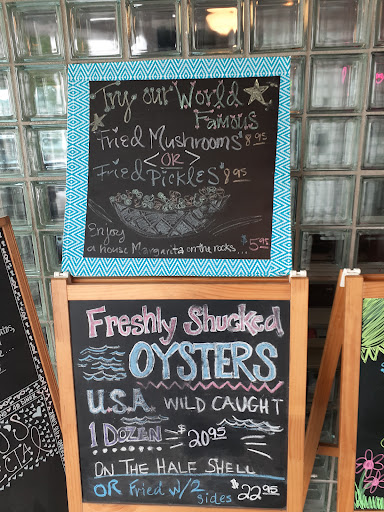 Try our World
Famous
"Fried Mushrooms" 8.95
<OR>
"Fried Pickles" 8.95
Enjoy
a house Margarita on the rocks... $5.95
Freshly Shucked
OYSTERS
U.S.A. WILD CAUGHT
1 DOZEN $20.95
ON THE HALF SHELL
OR Fried w/2 sides $22.95